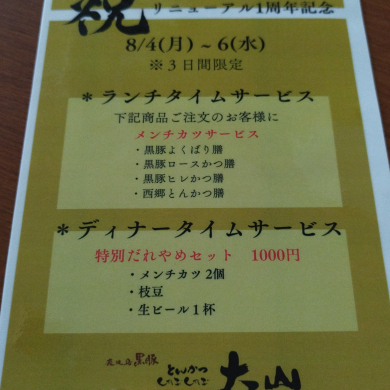 祝
リニューアル1周年記念
8/4(月)~6(水)
※3日間限定
*ランチタイムサービス
下記商品ご注文のお客様に
メンチカツサービス
・黒豚よくばり膳
・黒豚ロースかつ膳
・黒豚ヒレかつ膳
・西郷とんかつ膳
*ディナータイムサービス
特別だれやめセット 1000円
・メンチカツ 2個
・枝豆
・生ビール1杯
黒豚
とんかつ
大山